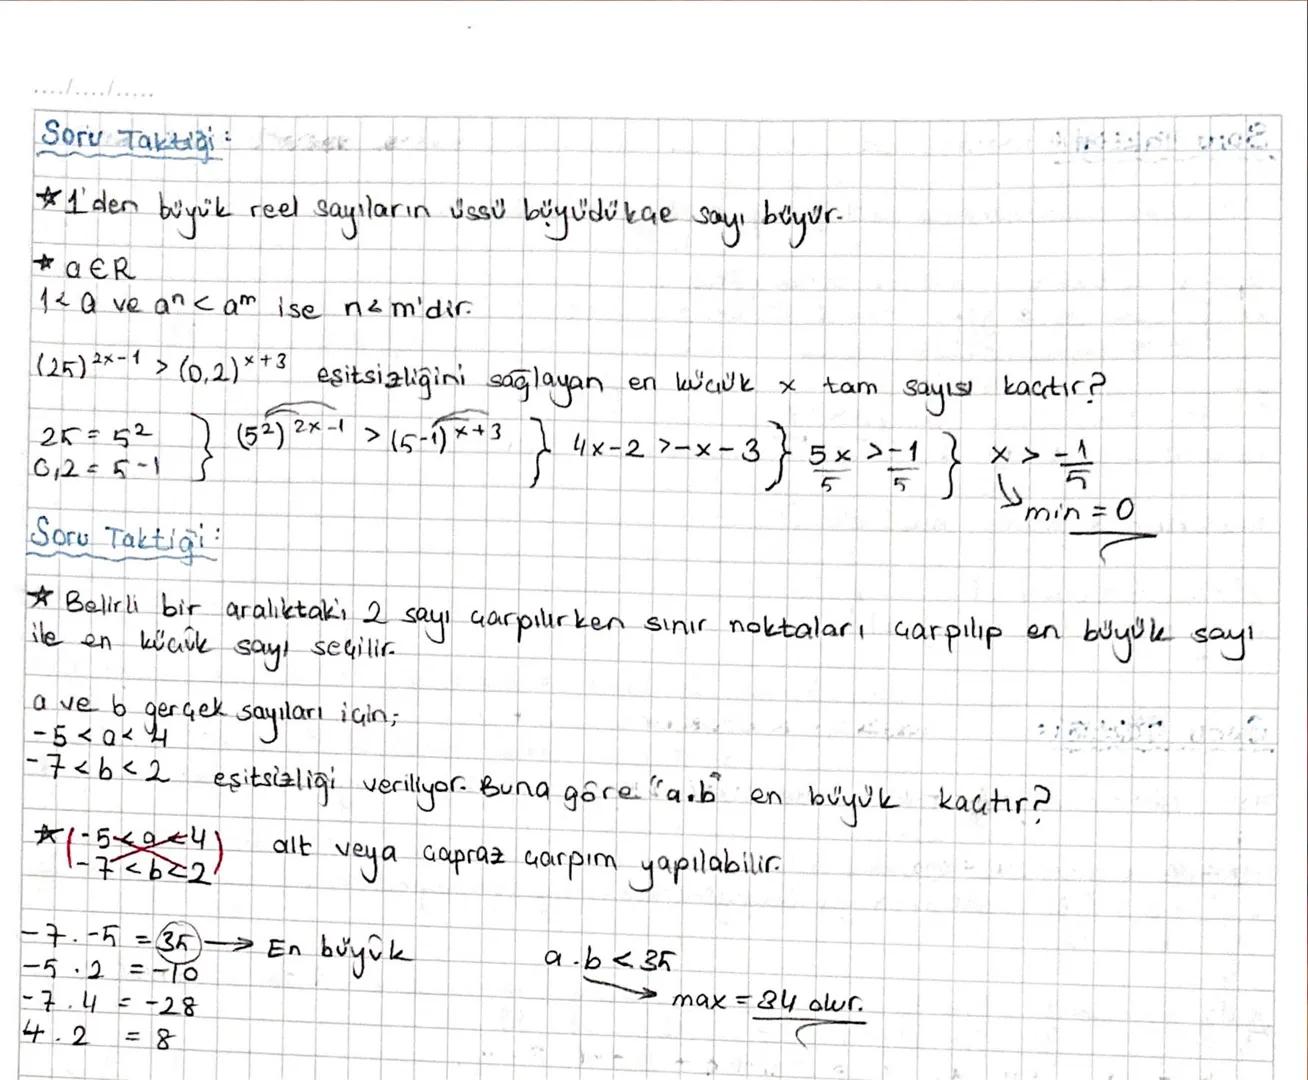 ..../..../.....
Soru Taktiği:
★ 1'den büyük reel sayıların üssü büyüdükçe sayı büyür.
★ a∈R
1<a ve aⁿ<aᵐ ise n<m'dir.
(25)^2x-1 > (0,2)^x+3 eşitsizliğini sağlayan en küçük x tam sayısı kaçtır?
25 = 5² } (5²)^2x-1 > (5-1)^x+3 } 4x-2 >-x-3 } 5x/5 > -1/5 } x > -1/5
0,2 = 5-1
min = 0
Soru Taktiği:
★ Belirli bir aralıktaki 2 sayı çarpılırken sınır noktaları çarpılıp en büyük sayı
ile en küçük sayı seçilir.
a ve b gerçek sayıları için;
-5<a<4
-7<b<2 eşitsizliği veriliyor. Buna göre "a.b" en büyük kaçtır?
★ (-5<a<4)
(-7<b<2) alt veya çapraz çarpım yapılabilir.
-7.-5 = 35 → En büyük a.b<35
-5.2 = -10
-7.4 = -28 max = 34 olur.
4.2 = 8